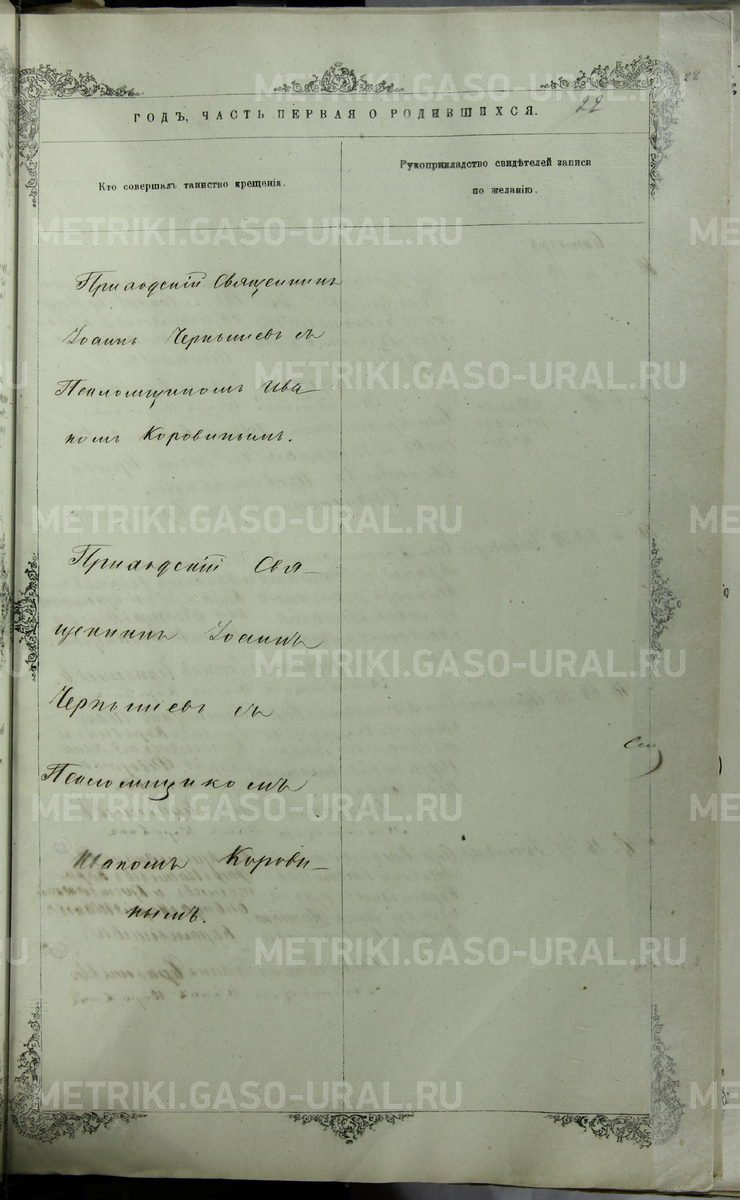 ГОДЪ, ЧАСТЬ ПЕРВАЯ О РОДИВШИХСЯ.
22
Кто совершалъ таинство крещенія.
Рукоприкладство свидѣтелей записи
по желанію.
Приходскій Священникъ
Іоаннъ Чернышевъ съ
Псаломщикомъ Ива
номъ Коровинымъ.
Приходскій Свя—
щенникъ Іоаннъ
Чернышевъ съ
Псаломщикомъ
Иваномъ Корови—
нымъ.
METRIKI.GASO-URAL.RU